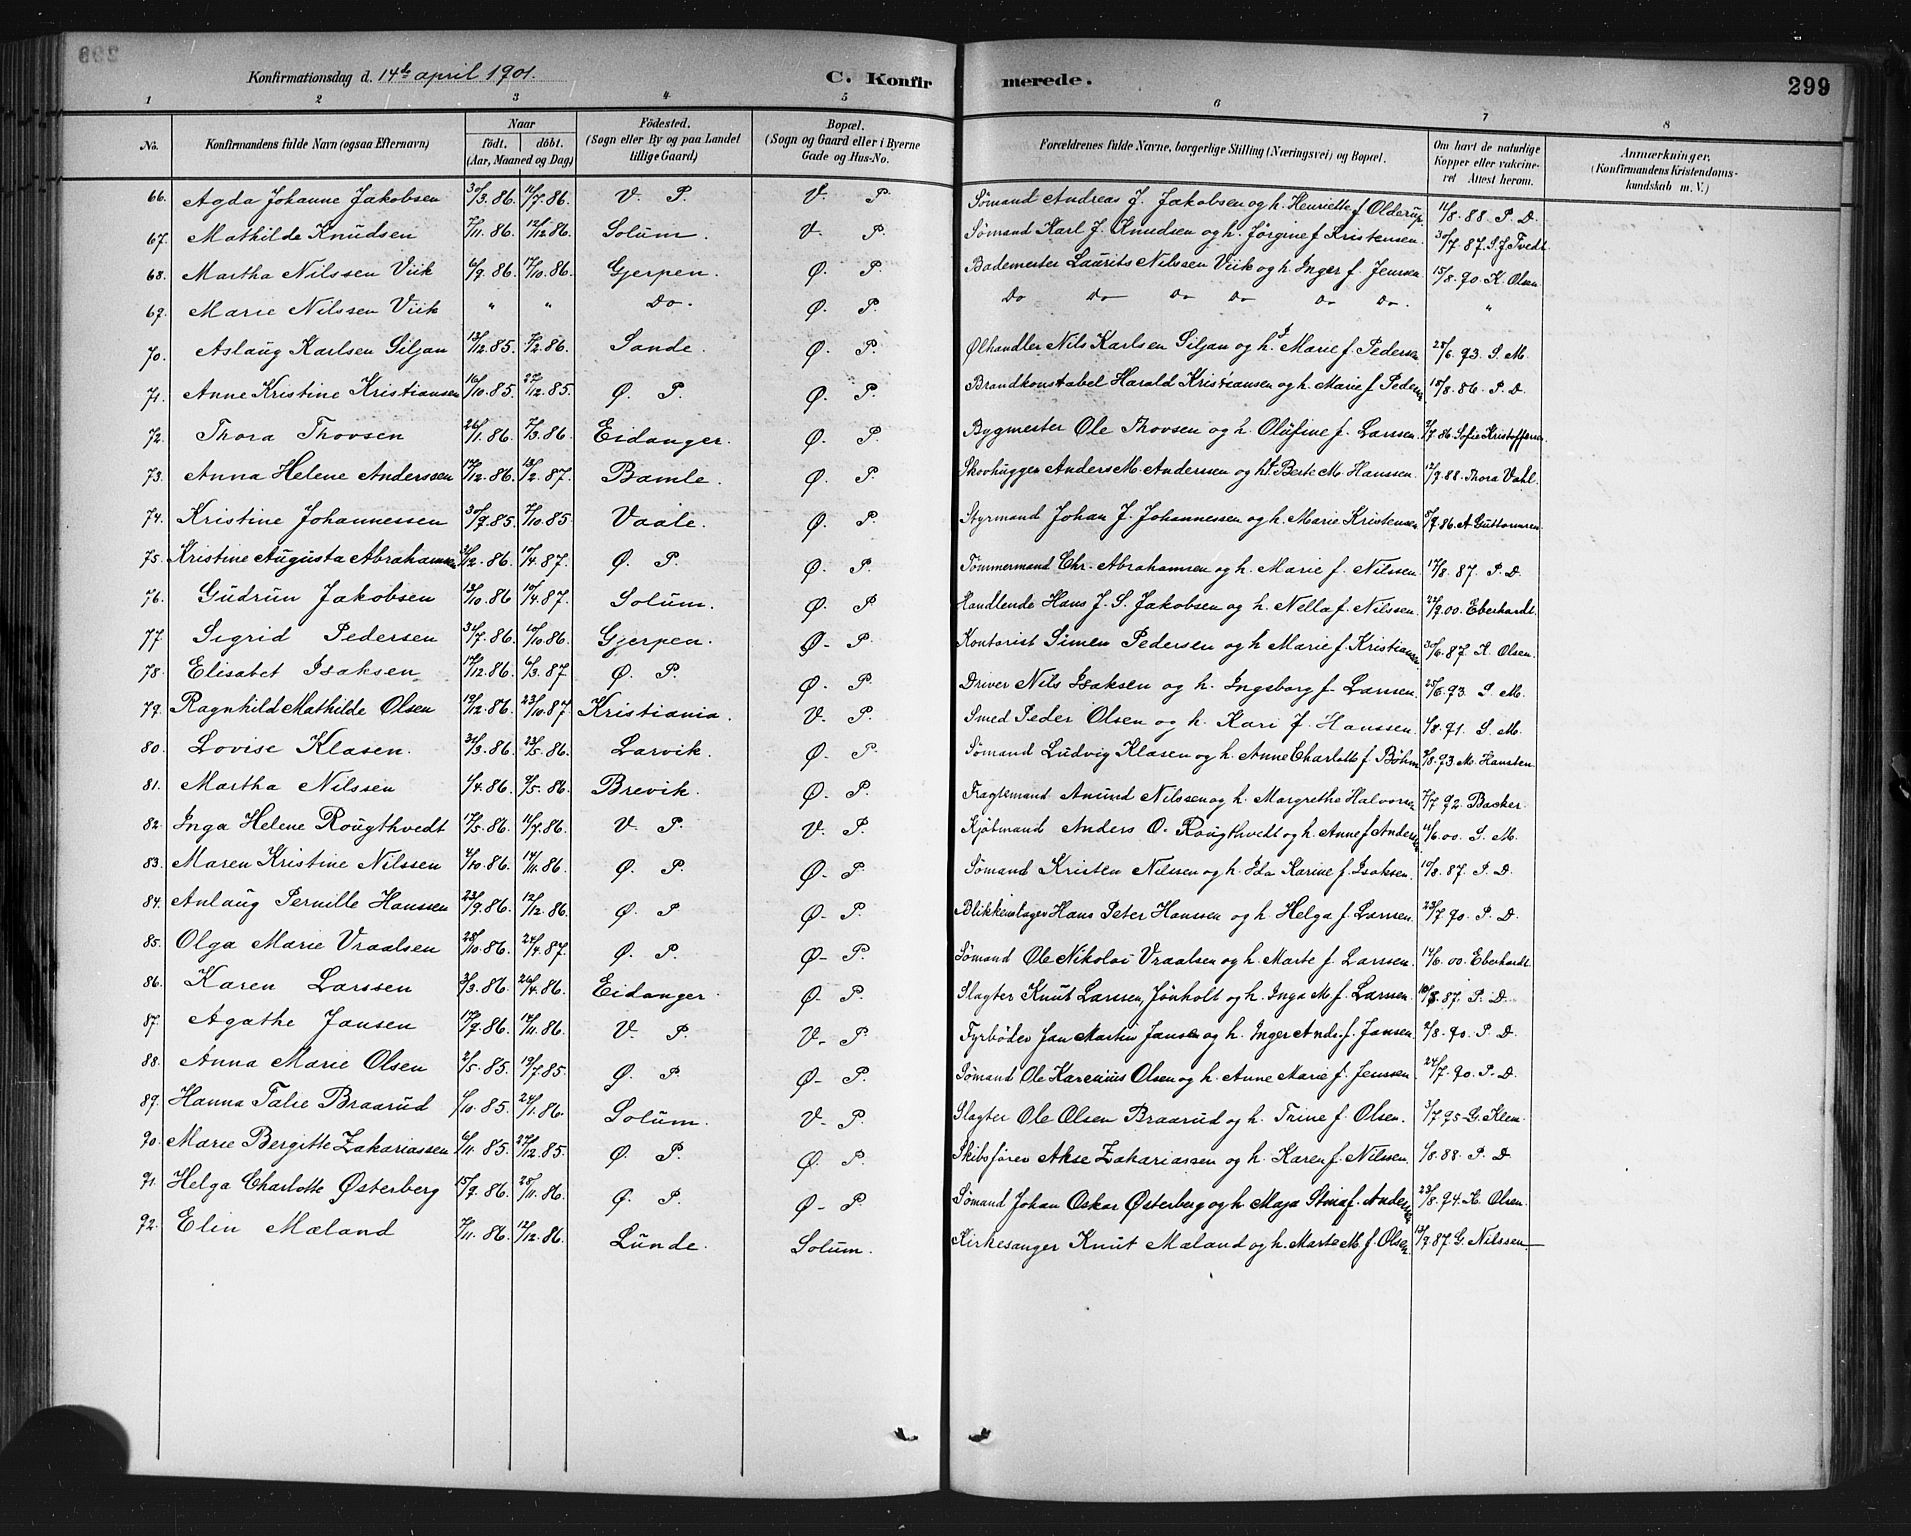 Konfirmationsdag d. 14de april 1901. C. Konfirmerede. 299
1 2 3 4 5 6 7 8
No. Konfirmandens fulde Navn (ogsaa Efternavn) Naar födt. döbt. (Aar, Maaned og Dag) Födested. (Sogn eller By og paa Landet tillige Gaard) Bopæl. (Sogn og Gaard eller i Byerne Gade og Hus-No. Forældrenes fulde Navne, borgerlige Stilling (Næringsvei) og Bopæl. Om havt de naturlige Kopper eller vakcineret Attest herom. Anmærkninger. (Konfirmandens Kristendomskundskab m. V.)
66. Agda Johanne Jakobsen 30/3.86. 11/7.86. V. P. V. P. Sømand Andreas J. Jakobsen og h. Henriette f. Olderup. 11/8.88. P. D.
67. Mathilde Knudsen 7/11.86. 12/12.86. Solum. V. P. Sømand Karl J. Knudsen og h. Jørgine f. Kristensen. 30/7.87. S. J. Tvedt
68. Martha Nilssen Viik 6/9.86. 17/10.86. Gjerpen. Ø. P. Bademester Laurits Nilssen Viik og h. Inger f. Jensen 15/8.90. K. Olsen
69. Marie Nilssen Viik " " Do. Ø. P. Do Do Do Do Do Do. "
70. Aslaug Karlsen Siljan 13/12.85. 7/2.86. Sande. Ø. P. Ølhandler Nils Karlsen Siljan og h. Marie f. Pedersen 28/6.93. S. M.
71. Anne Kristine Kristiansen 16/10.85. 27/12.85. Ø. P. Ø. P. Brandkonstabel Harald Kristiansen og h. Marie f. Pedersen 18/8.86. P. D.
72. Thora Thovsen 26/1.86. 7/3.86. Eidanger. Ø. P. Bygmester Ole Thovsen og h. Olufine f. Larssen. /7.86. Sofie Kristoffersen
73. Anna Helene Anderssen 17/12.86. 13/2.87. Bamle. Ø. P. Skovhugger Anders M. Anderssen og h. Berte M. Hanssen. 12/9.88. Thora Vahl.
74. Kristine Johannessen 30/9.85. 7/10.85. Vaale. Ø. P. Styrmand Johan J. Johannessen og h. Marie Kristensen 8/9.86. A Guttormsen
75. Kristine Augusta Abrahamsen 31/12.86. 10/4.87. Ø. P. Ø. P. Tømmermand Chr. Abrahamsen og h. Marie f. Nilssen. 17/8.87. P. D.
76. Gudrun Jakobsen 13/10.86 10/4.87. Solum. Ø. P. Handlende Hans J. S. Jakobsen og h. Nella f. Nilssen. 22/9.00. Eberhardt.
77. Sigrid Pedersen 31/7.86. 10/10.86. Gjerpen. Ø. P. Kontorist Simen Pedersen og h. Marie f. Kristiansen 30/6.87. K. Olsen.
78. Elisabet Isaksen. 17/12.86. 6/3.87. Ø. P. Ø. P. Driver Nils Isaksen og h. Ingeborg f. Larssen. 28/6.93. S. M.
79. Ragnhild Mathilde Olsen 19/12.86. 23/10.87 Kristiania. V. P. Smed Peder Olsen og h. Kari f. Hanssen. /8.91. S. M.
80. Lovise Klasen. 31/3.86. 23/5.86. Larvik. Ø. P. Sømand Ludvig Klasen og h. Anne Charlotte f. Bøhm /8.93. M. Hansten
81. Martha Nilssen /4.86. 9/5.86. Brevik. Ø. P. Fragtemand Amund Nilssen og h. Margrethe Halvorsen 7/7 92. Backer.
82. Inga Helene Rougthvedt 17/5.86. 11/7.86. V. P. V. P. Kjøbmand Anders O. Rougthvedt og h. Anne f. Anderssen 11/6.00. S. M.
83. Maren Kristine Nilssen 4/10.86. 14/11.86. Ø. P. Ø. P. Sømand Kristen Nilssen og h. Ida Karine f. Isaksen. 10/8.87. P. D.
84. Anlaug Pernille Hanssen 23/9.86. 12/12.86. Ø. P Ø. P. Blikkenslager Hans Peter Hanssen og h. Helga f. Larssen. 23/7.90. P. D.
85. Olga Marie Vraalsen 28/10.86. 24/4.87. Ø. P. Ø. P. Sømand Ole Nikolai Vraalsen og h. Marte f. Larssen. 14/6.00. Eberhardt
86. Karen Larssen 3/3.86. 26/4.86. Eidanger Ø. P. Slagter Knut Larssen, Jønholt og h. Inga M. f. Larssen. 10/8.87. P. D.
87. Agathe Jansen 17/9.86. 14/11.86. V. P. V. P. Fyrbøder Jan Martin Jansen og h. Inger Andr. f. Jansen. 2/8.90. P. D.
88. Anna Marie Olsen 2/5.85. 19/7.85. Ø. P. Ø. P. Sømand Ole Karenius Olsen og h. Anne Marie f. Jenssen. 24/7.90. P. D.
89. Hanna Talie Braarud /10.85. 24/1.86. Solum. V. P. Slagter Ole Olsen Braarud og h. Trine f. Olsen. 3/7.95. G. Klem.
90. Marie Bergitte Zakariassen 6/11.85. 27/12.85. Ø. P. Ø. P. Skibsfører Akse Zakariassen og h. Karen f. Nilssen. /8.88. P. D
91. Helga Charlotte Østerberg 15/9.86. 28/11.86. Ø. P. Ø. P. Sømand Johan Oskar Østerberg og h. Maja Stina f. Anderssen 23/8.94. K. Olsen.
92. Elin Mæland 7/11.86. 12/12.86. Lunde. Solum. Kirkesanger Knut Mæland og h. Marte M. f. Olsen. 13/9.87. G. Nilssen